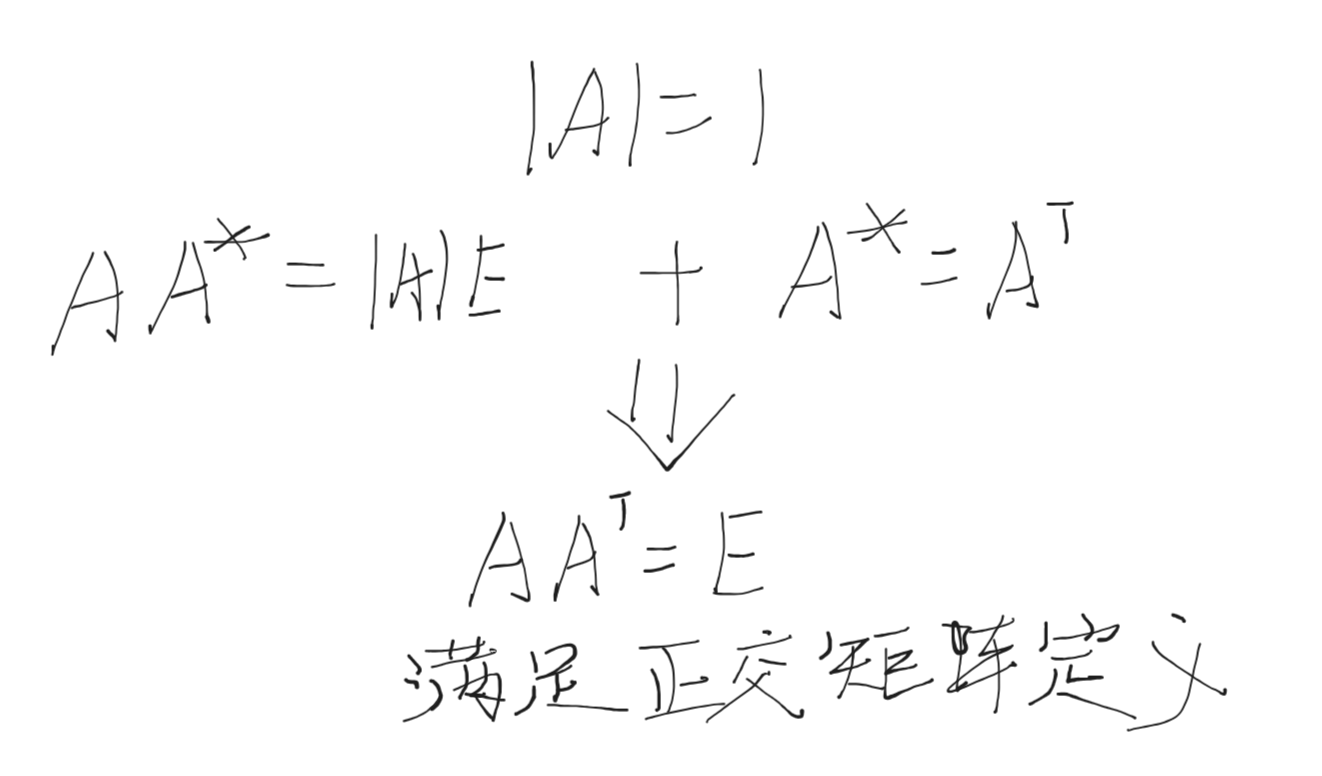 |A|=1
AA*=|A|E + A*=Aᵀ
⇓
AAᵀ=E
满足正交矩阵定义